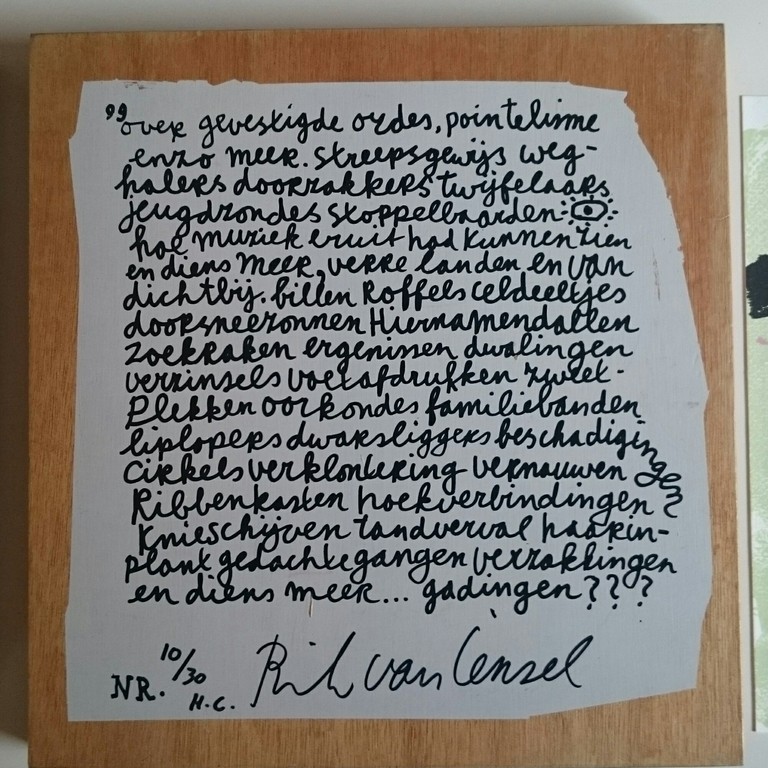 „over gevestigde ordes, pointelisme
enzo meer. streepsgewijs weg-
halers doorzakkers twijfelaars
jeugdzondes stoppelbaarden
hoe muziek eruit had kunnen zien
en diens meer, verre landen en van
dichtbij. billen Roffels celdeeltjes
doorsneezonnen Hiernamendallen
zoekraken ergenissen dwalingen
verzinsels voetafdrukken zweet-
plekken oorkondes familiebanden
liplopers dwarsliggers beschadigingen
cirkels verklontering vernauwen
Ribbenkasten hoekverbindingen
Knieschijven tandverval haarin-
plant gedachtegangen verzakkingen
en diens meer... gadingen ???
NR. 10/30 H.C. Rik van Iersel